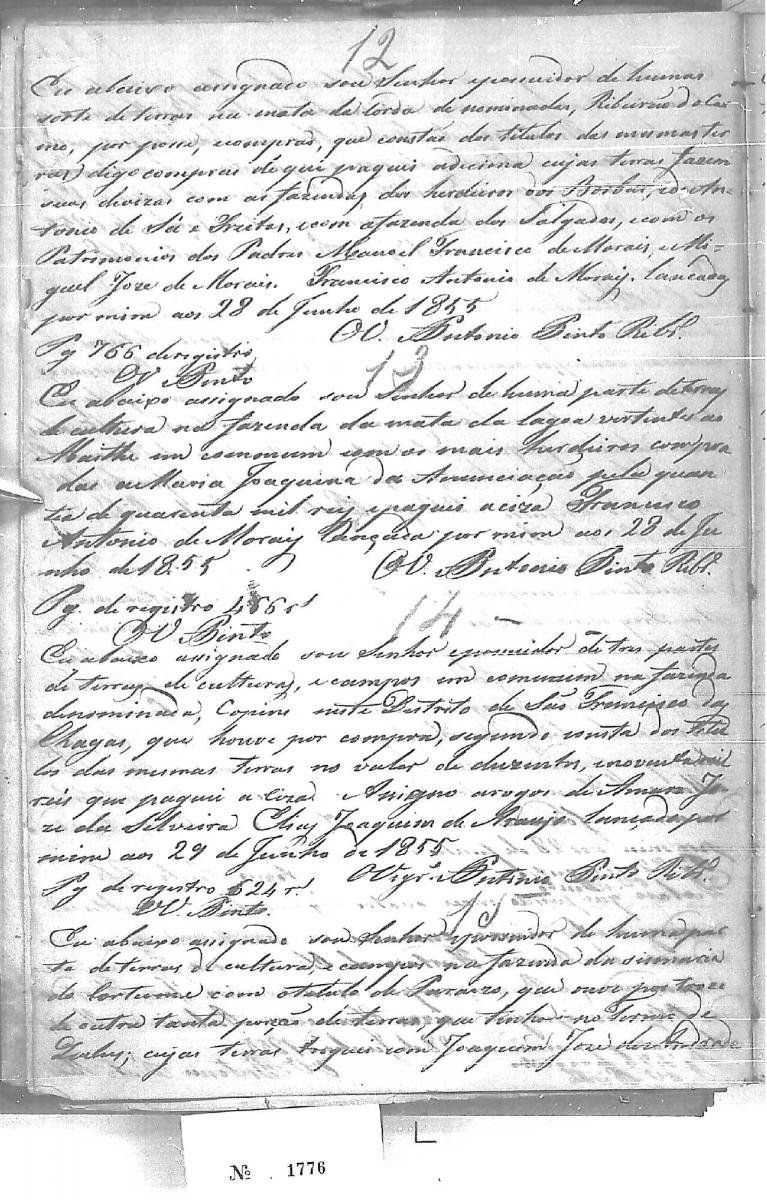 12
Eu abaixo assignado sou Senhor eposuidor de humas
sorte de terras na mata da borda de nominadas, Ribeirão do Car-
mo, por posse, ecompras, que constão dos titulos das mesmas ter
ras) digo compras de que paguei adecima cujas terras fazem
suas divizas com as fazendas dos herdeiros dos Borbas, edo An-
tonio de Sá e Freitas, ecom afazenda dos Salgados, ecom os
Patrimonios dos Padres Manoel Francisco de Morais, e Mi-
guel Joze de Morais. Francisco Antonio de Moraiz. lancada
por mim aos 28 de Junho de 1855
OV. Antonio Pinto Ribr.
Pg 766 de registro
OV Pinto
13
Eu abaixo assignado sou Senhor de huma parte de terras
de cultura na fazenda da mata da lagoa vertentes ao
em commum com os mais herdeiros compra
das a Maria Joaquina da Anunciação pela quan
tia de quarenta mil reis epaguei aciza Francisco
Antonio de Moraiz Lançada por mim aos 28 de Ju
nho de 1855
OV. Antonio Pinto Ribr.
Pg. de registro 466 rs
OV Pinto
14 -
Eu abaixo assignado sou Senhor eposuidor de tres partes
de terras de cultura, ecampos em commum na fazenda
denominada, neste Destrito de São Francisco das
Chagas, que houve por compra, segundo consta dos titu
los das mesmas terras no valor de duzentos, enoventa mil
reis que paguei a ciza. Asigno arogos de Jo-
ze da Silveira Elias Joaquim de Araujo lançada por
mim aos 29 de Junho de 1855
Vigr.o Antonio Pinto Ribr.
Pg de registro 624 rs.
OV. Pinto.
15 -
Eu abaixo assignado sou Senhor eposuidor de huma par
te de terras de cultura, ecampos na fazenda da sismaria
do Cortume com otitulo de que ouve por troca
de outra tanta porção de terras, que tinha no Termo de
cujas terras troquei com Joaquim Joze de Andrade
Nº 1776